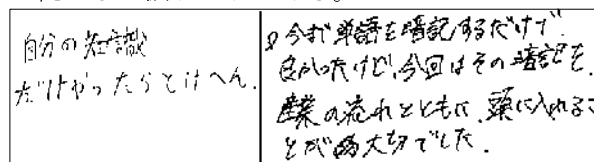 自分の知識
だけやったらとけへん.
今まで単語を暗記するだけで.
良かったけど、今回はその暗記を.
産業の流れとともに、頭に入れるこ
とが大切でした.